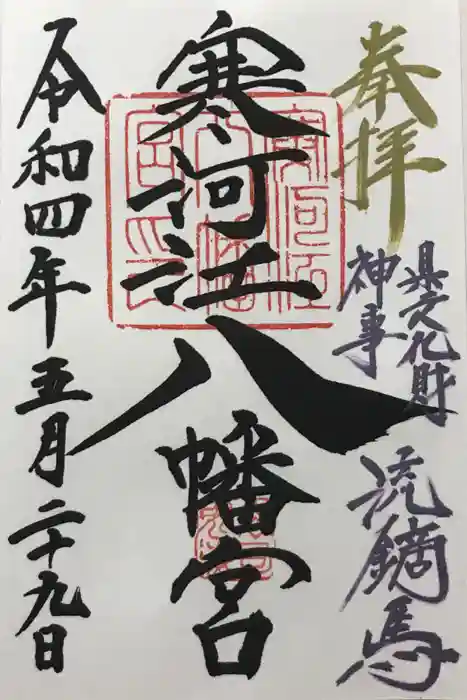 奉拝
県文化財
神事
流鏑馬
寒河江
八幡宮
令和四年五月二十九日